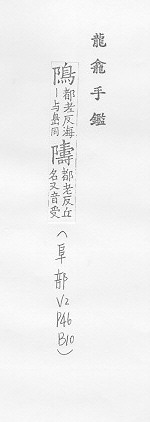 龍龕手鑑
隝都老反海丨与島同隯都老反丘名又音受(阜部V2P46B10)